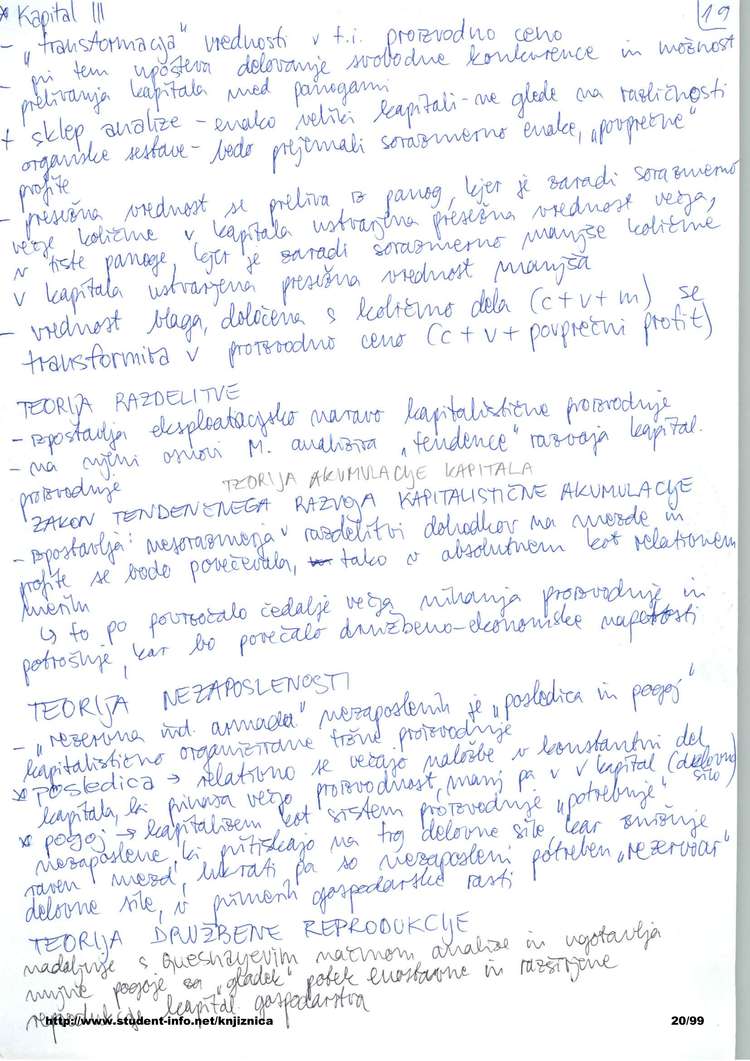 * Kapital III
19
- „transformacija" vrednosti v t.i. proizvodno ceno
- pri tem upošteva delovanje svobodne konkurence in možnost
prelivanja kapitala med panogami
+ sklep analize - enako veliki kapitali - ne glede na različnosti
organske sestave - bodo prejemali sorazmerno enake, „povprečne"
profite
- presežna vrednost se preliva iz panog, kjer je zaradi sorazmerno
večje količine v kapitala ustvarjena presežna vrednost večja,
v tiste panoge, kjer je zaradi sorazmerno manjše količine
v kapitala ustvarjena presežna vrednost manjša
- vrednost blaga, določena s količino dela (c+v+m) se
transformira v proizvodno ceno (c+v+povprečni profit)
TEORIJA RAZDELITVE
- izpostavlja eksploatacijsko naravo kapitalistične proizvodnje
- na njeni osnovi M. analizira „tendence" razvoja kapital.
proizvodnje
TEORIJA AKUMULACIJE KAPITALA
ZAKON TENDENČNEGA RAZVOJA KAPITALISTIČNE AKUMULACIJE
- izpostavlja: nesorazmerja v razdelitvi dohodkov na mezde in
profite se bodo povečevala, tako v absolutnem kot relativnem
merilu
↳ to po povzročalo čedalje večja nihanja proizvodnje in
potrošnje, kar bo povečalo družbeno-ekonomske napetosti
TEORIJA NEZAPOSLENOSTI
- „rezervna ind. armada" nezaposlenih je „posledica in pogoj"
kapitalistično organizirane tržne proizvodnje
* posledica → relativno se večajo naložbe v konstantni del
kapitala, ki prinaša večjo proizvodnost, manj pa v v kapital (delovno
silo)
* pogoj → kapitalizem kot sistem proizvodnje „potrebuje"
nezaposlene, ki pritiskajo na trg delovne sile kar znižuje
raven mezd, hkrati pa so nezaposleni potreben „rezervoar"
delovne sile, v primerih gospodarske rasti
TEORIJA DRUŽBENE REPRODUKCIJE
nadaljuje s Quesnayevim načinom analize in ugotavlja
nujne pogoje za „gladek" potek enostavne in razširjene
reprodukcije kapital. gospodarstva
http://www.student-info.net/knjiznica
20/99